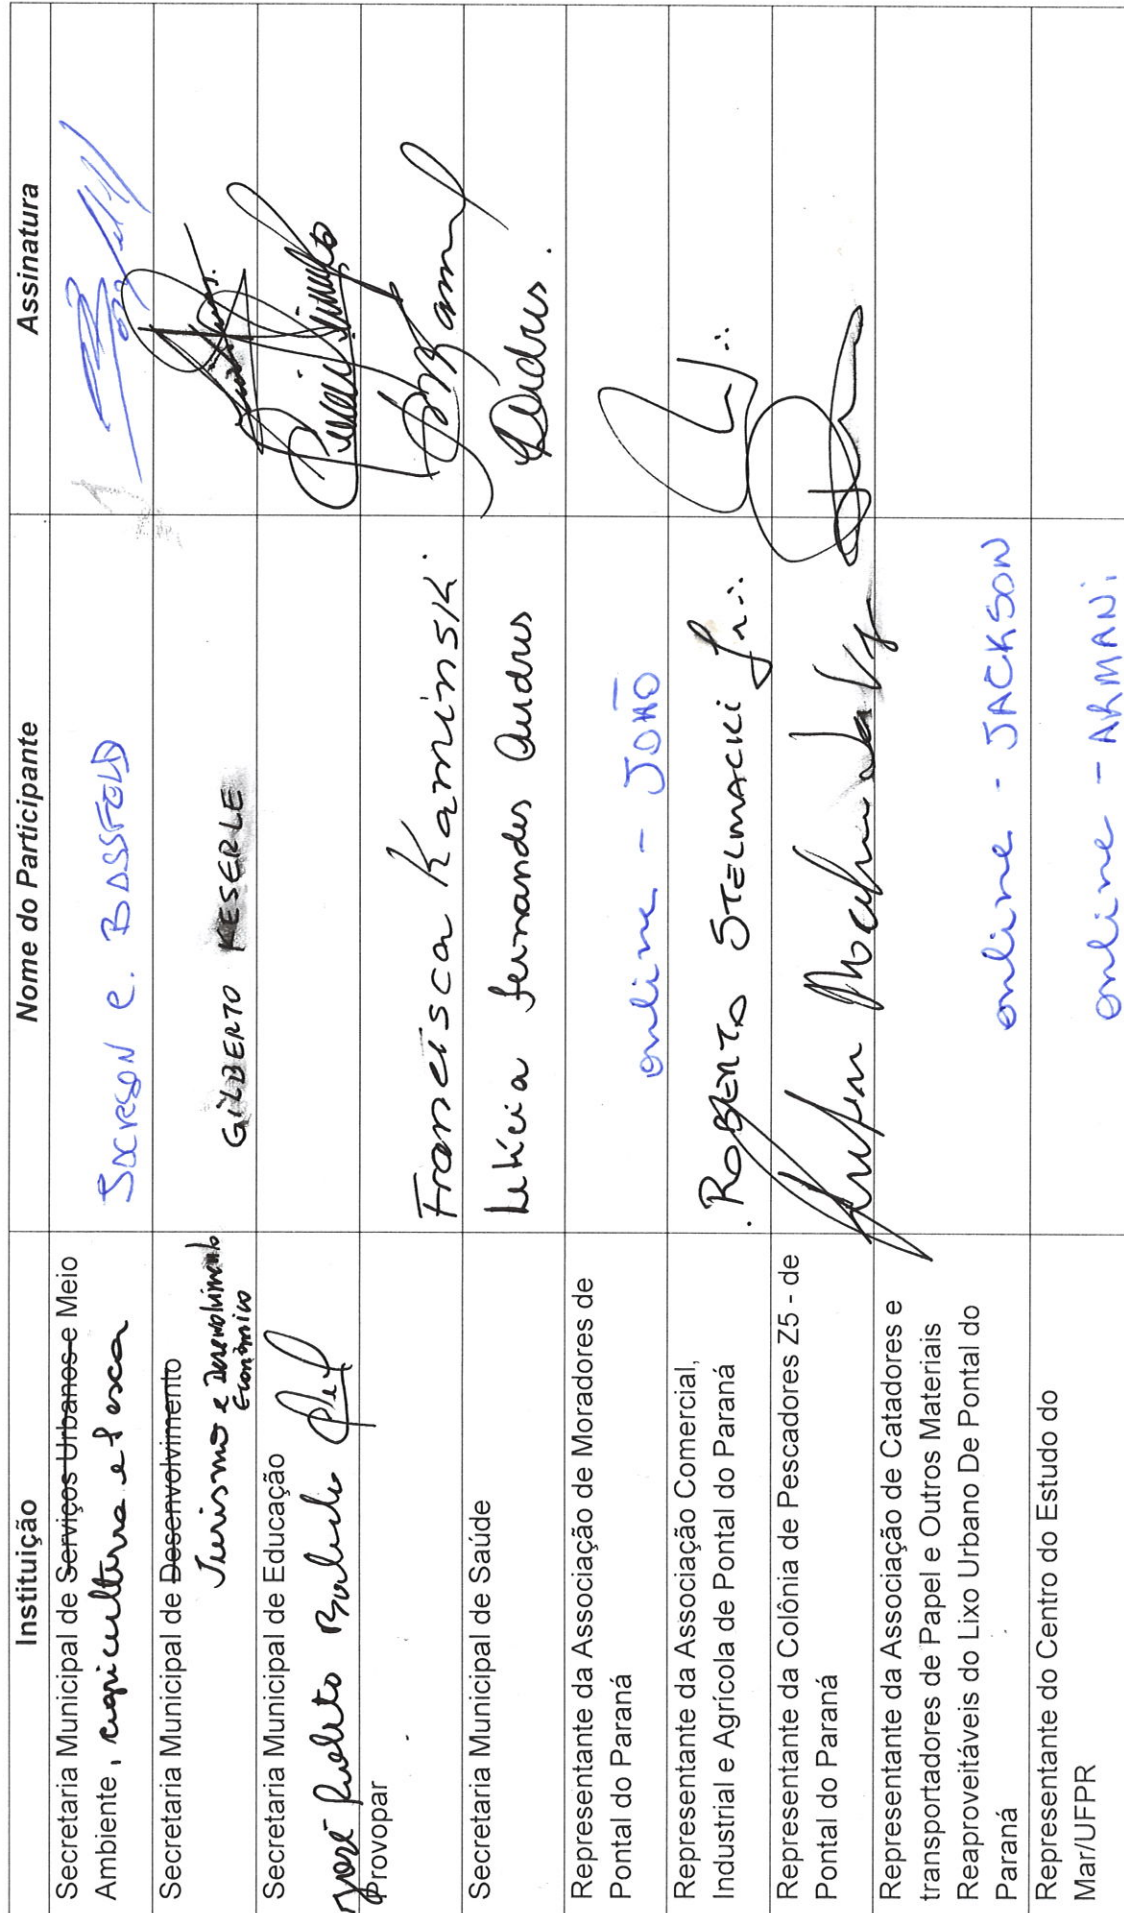 Instituição
Nome do Participante
Assinatura
Secretaria Municipal de Serviços Urbanos e Meio
Ambiente, agricultura e Pesca
JACKSON C. BASSFELD
Secretaria Municipal de Desenvolvimento
Turismo e Desenvolvimento
Econômico
GILBERTO KESERLE
Secretaria Municipal de Educação
José Roberto
Provopar
Francisca Kaminski
Secretaria Municipal de Saúde
Letícia Fernandes Andres
Andres.
Representante da Associação de Moradores de
Pontal do Paraná
online - JOÃO
Representante da Associação Comercial,
Industrial e Agrícola de Pontal do Paraná
ROBERTO STELMACKI Jr.:
Representante da Colônia de Pescadores Z5 - de
Pontal do Paraná
Machado
Representante da Associação de Catadores e
transportadores de Papel e Outros Materiais
Reaproveitáveis do Lixo Urbano De Pontal do
Paraná
online - JACKSON
Representante do Centro do Estudo do
Mar/UFPR
online - ARMANI